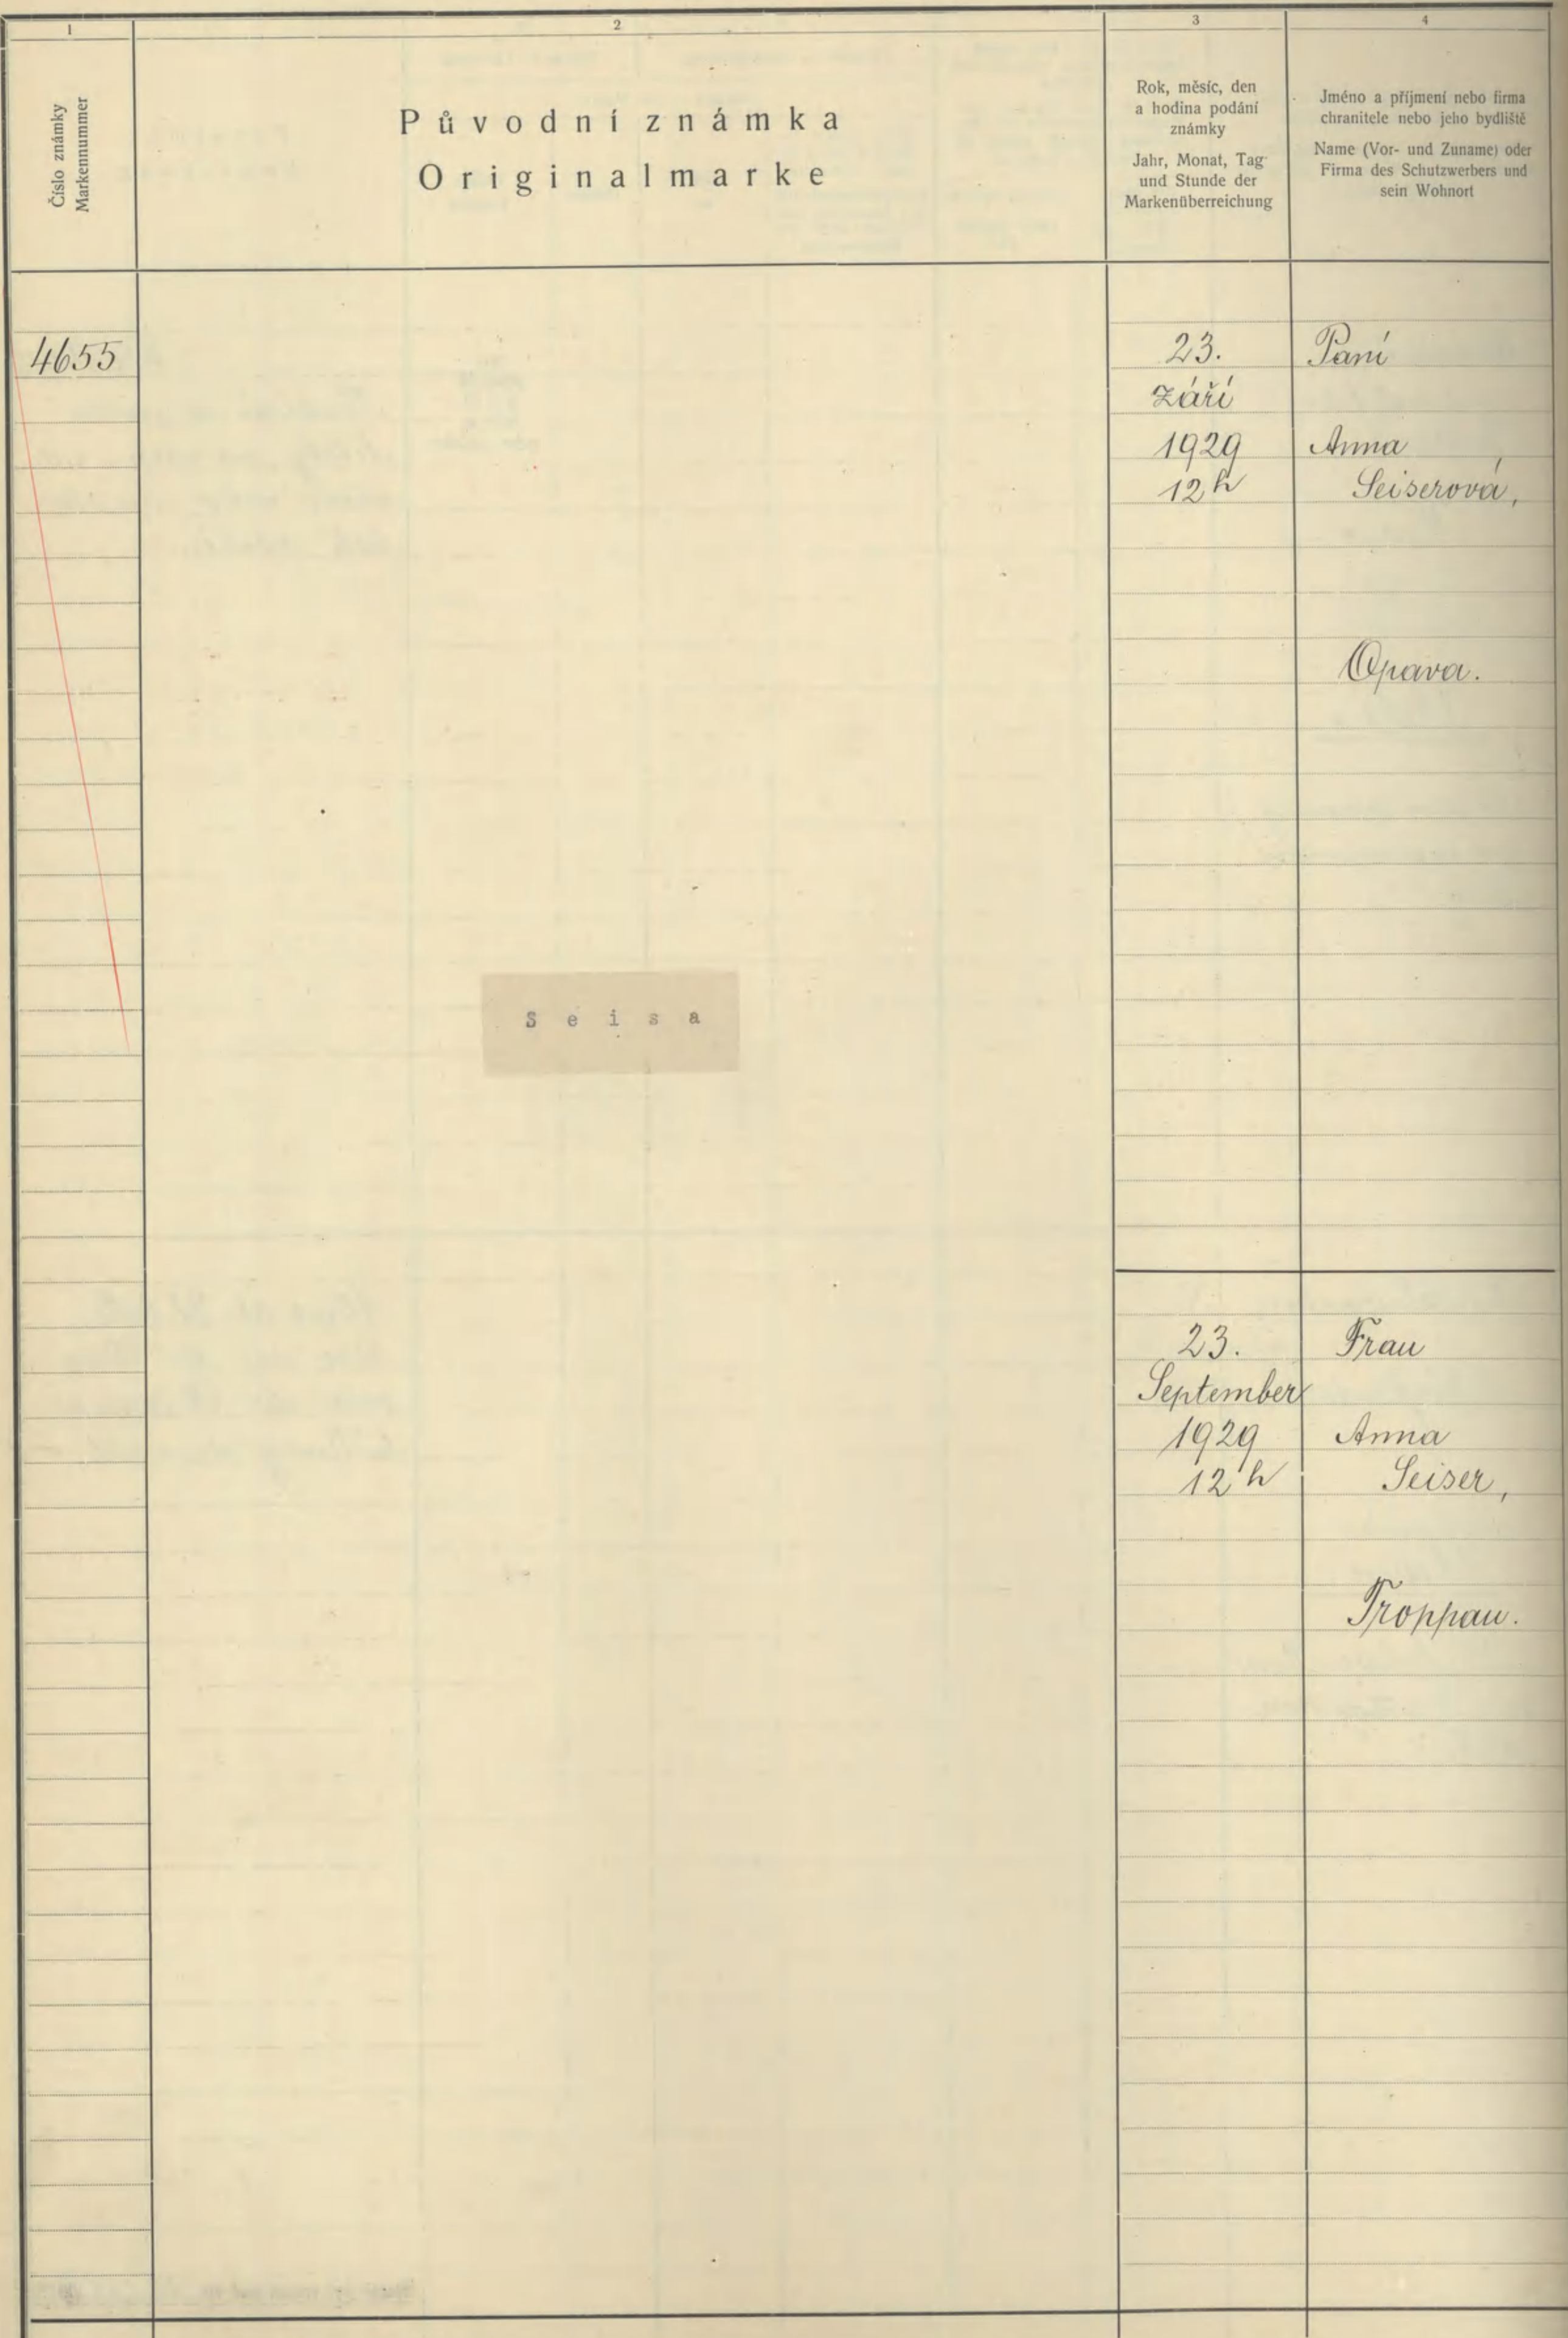 1
2
3
4
Číslo známky
Markennummer
Původní známka
Originalmarke
Rok, měsíc, den
a hodina podání
známky
Jahr, Monat, Tag
und Stunde der
Markenüberreichung
Jméno a příjmení nebo firma
chranitele nebo jeho bydliště
Name (Vor- und Zuname) oder
Firma des Schutzwerbers und
sein Wohnort
4655
23.
září
1929
12 h
Paní
Anna
Seiserová,
Opava.
Seisa
23.
September
1929
12 h
Frau
Anna
Seiser,
Troppau.